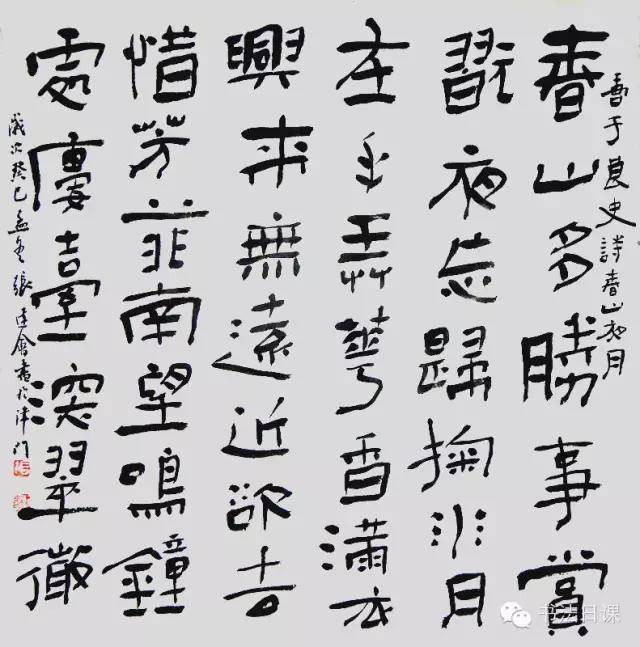 書于良史詩春山夜月
春山多勝事賞
翫夜忘歸掬水月
在手弄華香滿衣
興来無遠近欲去
惜芳菲南望鳴鐘
處廔臺深翠微
歲次癸巳孟冬張建會書於津門
书法日课